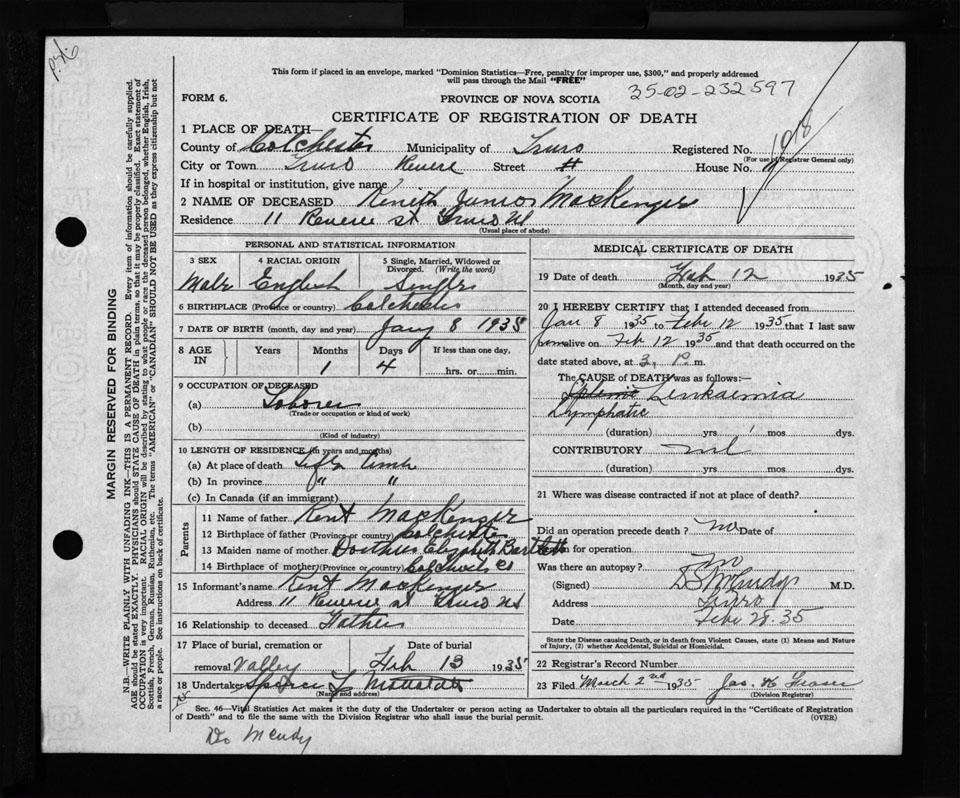 P.H.6
This form if placed in an envelope, marked "Dominion Statistics—Free, penalty for improper use, $300," and properly addressed
will pass through the Mail "FREE"
35-02-232597
FORM 6.
PROVINCE OF NOVA SCOTIA
CERTIFICATE OF REGISTRATION OF DEATH
1 PLACE OF DEATH—
County of Colchester Municipality of Truro Registered No.
(For use of Registrar General only)
City or Town Truro Revere Street # House No. 11
If in hospital or institution, give name
2 NAME OF DECEASED Keneth Junior MacKenzie
Residence 11 Revere st Truro NS
(Usual place of abode)
PERSONAL AND STATISTICAL INFORMATION
3 SEX
Male
4 RACIAL ORIGIN
English
5 Single, Married, Widowed or Divorced. (Write the word)
Single
6 BIRTHPLACE (Province or country) Colchester
7 DATE OF BIRTH (month, day and year) Jany 8 1935
8 AGE IN
Years
Months
1
Days
4
If less than one day,
hrs. or min.
9 OCCUPATION OF DECEASED
(a)
(Trade or occupation or kind of work)
(b)
(Kind of industry)
10 LENGTH OF RESIDENCE (in years and months)
(a) At place of death Life time
(b) In province " "
(c) In Canada (if an immigrant)
Parents
11 Name of father Kent MacKenzie
12 Birthplace of father (Province or country) Colchester
13 Maiden name of mother Elizabeth Bartlett
14 Birthplace of mother (Province or country) Co
15 Informant's name Kent MacKenzie
Address 11 Revere st Truro NS
16 Relationship to deceased Father
17 Place of burial, cremation or removal Valley
Date of burial
Feb 13 1935
18 Undertaker
(Name and address)
MEDICAL CERTIFICATE OF DEATH
19 Date of death Feb 12 1935
(Month, day and year)
20 I HEREBY CERTIFY that I attended deceased from
Jan 8 1935 to Febr 12 1935 that I last saw
him alive on Feb 12 1935 and that death occurred on the
date stated above, at 3 P. m.
The CAUSE of DEATH was as follows:—
Leukaemia
Lymphatic
(duration) yrs 1 mos dys.
CONTRIBUTORY nil
(duration) yrs. mos. dys.
21 Where was disease contracted if not at place of death?
Did an operation precede death? no Date of
for operation
Was there an autopsy? no
(Signed) M.D.
Address Truro
Date Febr 28.35
State the Disease causing Death, or in death from Violent Causes, state (1) Means and Nature
of Injury, (2) whether Accidental, Suicidal or Homicidal.
22 Registrar's Record Number
23 Filed March 2nd 1935 Jas. H Fraser
(Division Registrar)
Sec. 46—Vital Statistics Act makes it the duty of the Undertaker or person acting as Undertaker to obtain all the particulars required in the "Certificate of Registration
of Death" and to file the same with the Division Registrar who shall issue the burial permit.
(OVER)
MARGIN RESERVED FOR BINDING
N.B.—WRITE PLAINLY WITH UNFADING INK—THIS IS A PERMANENT RECORD. Every item of information should be carefully supplied.
AGE should be stated EXACTLY. PHYSICIANS should STATE CAUSE OF DEATH in plain terms, so that it may be properly classified. Exact statement of
OCCUPATION is very important. RACIAL ORIGIN will be described by stating to what people or race the deceased person belonged, whether English, Irish,
Scottish, French, German, Russian, Ruthenian, etc. The terms "AMERICAN" or "CANADIAN" SHOULD NOT BE USED as they express citizenship but not
a race or people. See instructions on back of certificate.